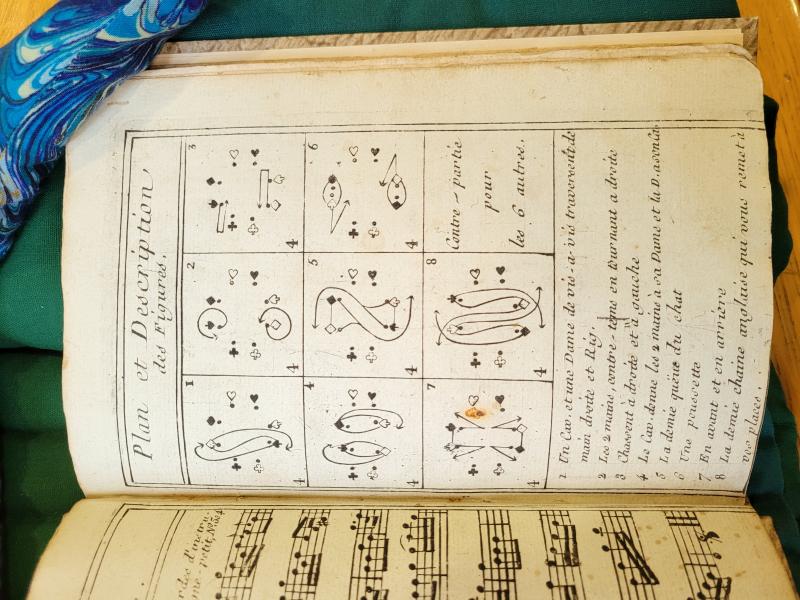 Plan et Description,
des Figures.
1
2
3
4
4
4
4
5
6
4
4
7
8
4
Contre-partie
pour
les 6 autres.
1 Un Cav. et une Dame de vis-à-vis traversent de
main droite et Rig.
2 Les 2 mains, contre-tems en tournant a droite
3 Chassent à droite et à gauche
4 Le Cav. donne les 2 mains à sa Dame et la D. a son Ca.
5 La demie queüe du chat
6 Une poussette
7 En avant et en arrière
8 La demie chaine anglaise qui vous remet à
vos places.